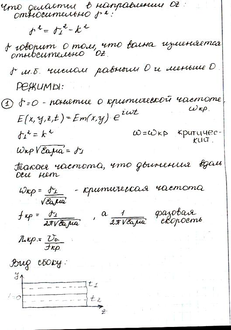 Что делается в направлении oz:
относительно γ²:
γ² = γ₂² - k²
γ говорит о том, что волна изменяется
относительно oz.
γ м.б. числом равным 0 и меньше 0
РЕЖИМЫ:
① γ=0 - понятие о критической частоте
ωкр.
E(x,y,z,t) = Em(x,y) e^{iωt}
γ₂² = k²
ω=ωкр критичес-
кий.
ωкр √εaμa = γ₂
Такая частота, что движения вдоль
оси нет
ωкр = γ₂/√εaμa - критическая частота
fкр = γ₂/2π√εaμa, а 1/2π√εaμa фазовая
скорость
λкр = /fкр
Вид сбоку:
y
z